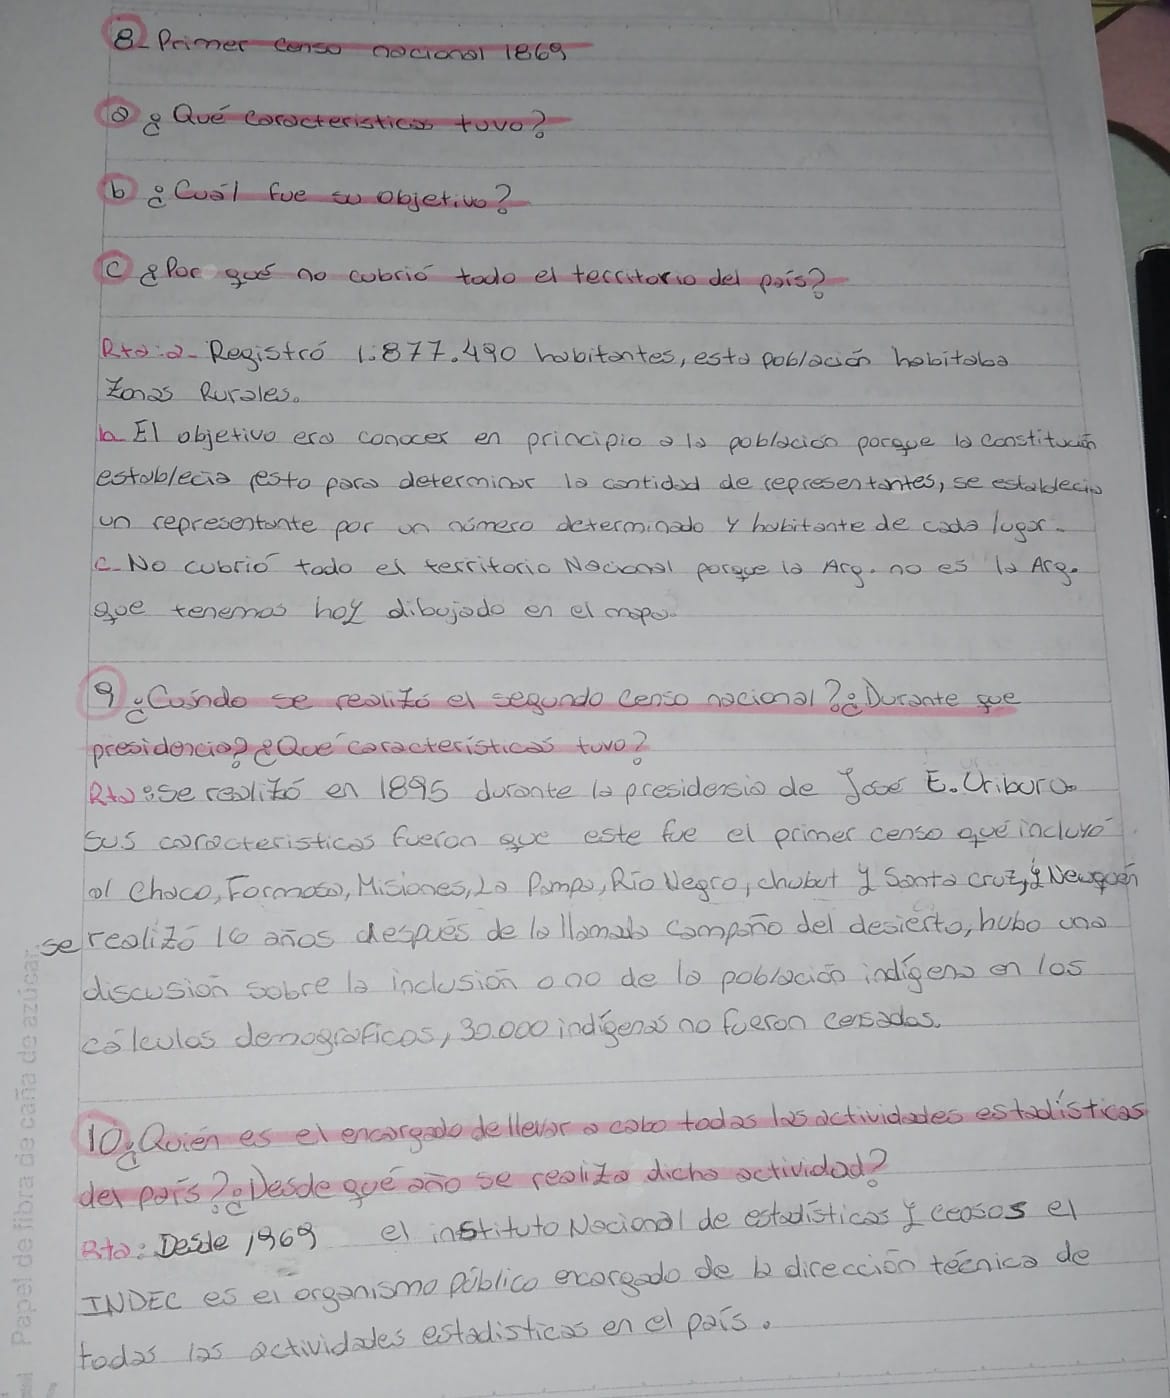 8- Primer censo nacional 1869
a ¿Qué caracteristicas tuvo?
b ¿Cuál fue su objetivo?
C ¿Por qué no cubrió todo el territorio del país?
Rta: a- Registró 1.877.490 habitantes, esta población habitaba
zonas Rurales.
b- El objetivo era conocer en principio a la población porque la constitución
establecia esto para determinar la cantidad de representantes, se establecia
un representante por un número determinado y habitante de cada lugar.
C- No cubrió todo el territorio Nacional porque la Arg. no es la Arg.
que tenemos hoy dibujado en el mapa.
9 ¿Cuándo se realizó el segundo censo nacional? ¿Durante que
presidencia? ¿Qué características tuvo?
Rta: se realizó en 1895 durante la presidensia de José E. Uriburo.
Sus caracteristicas fueron que este fue el primer censo qué incluyó
al Chaco, Formosa, Misiones, La Pampa, Río Negro, chubut y Santa cruz, y Neuquén
se realizó 16 años después de la llamada campaña del desierto, hubo una
discusión sobre la inclusión o no de la población indígena en los
cálculos demograficos, 30.000 indígenas no fueron censados.
10 ¿Quién es el encargado de llevar a cabo todas las actividades estadísticas
del país? ¿Desde qué año se realiza dicha actividad?
Rta: Desde 1969 el instituto Nacional de estadísticas y censos el
INDEC es el organismo público encargado de la dirección técnica de
todas las actividades estadisticas en el país.
Papel de fibra de caña de azúcar